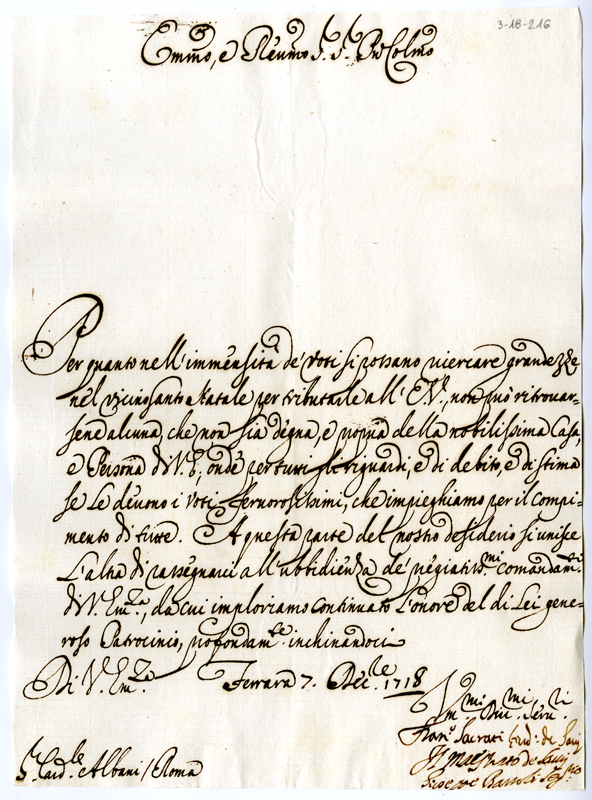 3-18-216
Emmo, e Reumo Sr. Sr. Pro Colmo
Per quanto nell'immensità de' Voti si possano ricercare grandezze
nel vicino Santo Natale per tributarle all'E.V., non può ritrovar-
sene alcuna, che non sia degna, e propria della nobilissima Casa,
e Persona di V. E., onde per tutti gli riguardi, e di debito, e di stima
se Le devono i Voti fervorosissimi, che impieghiamo per il compi-
mento di tutte. A questa parte del nostro desiderio si unisce
L'altra di rassegnarci all'ubbidienza de' pregiatiss.mi comandam.ti
di V. Em.za, da cui imploriamo continuato L'onore del di Lei gene-
roso Patrocinio, profondam.te inchinandoci
Di V. Em.za
Ferrara 7. Dec.le 1718
Um.mi Div.mi Serv.ri
Fran.o Sacrati Giud: de Savij
Il Maestrato de Savij
Giuseppe Bartoli Seg.rio
Sr. Card.le Albani / Roma